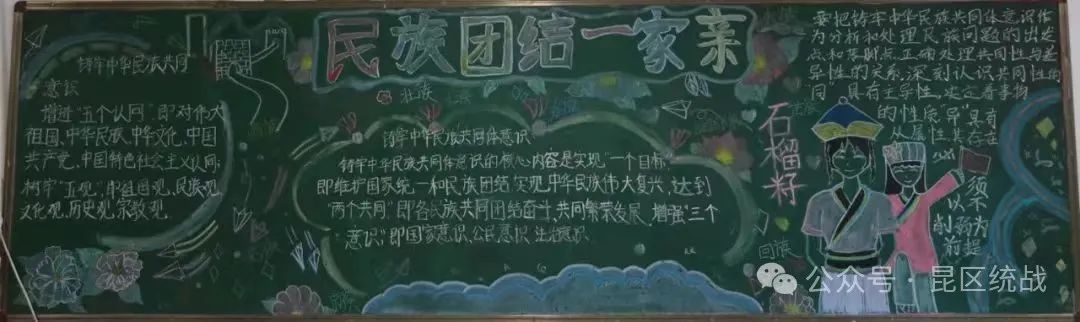 民族团结一家亲
铸牢中华民族共同
意识
增进“五个认同”即对伟大
祖国、中华民族、中华文化、中国
共产党、中国特色社会主义认同,
树牢“五观”,即祖国观、民族观、
文化观、历史观、宗教观.
壮族
铸牢中华民族共同体意识
铸牢中华民族共同体意识的核心内容是实现“一个目标”
即维护国家统一和民族团结,实现中华民族伟大复兴,达到
“两个共同”即各民族共同团结奋斗、共同繁荣发展,增强“三个
意识”即国家意识、公民意识、法治意识
石榴籽
要把铸牢中华民族共同体意识作
为分析和处理民族问题的出发
点和落脚点.正确处理共同性与差
异性的关系,深刻认识共同性的
“同”具有主导性,决定着事物
的性质“异”具有
从属性其存在
须以不
削弱为
前提
回族
公众号·昆区统战